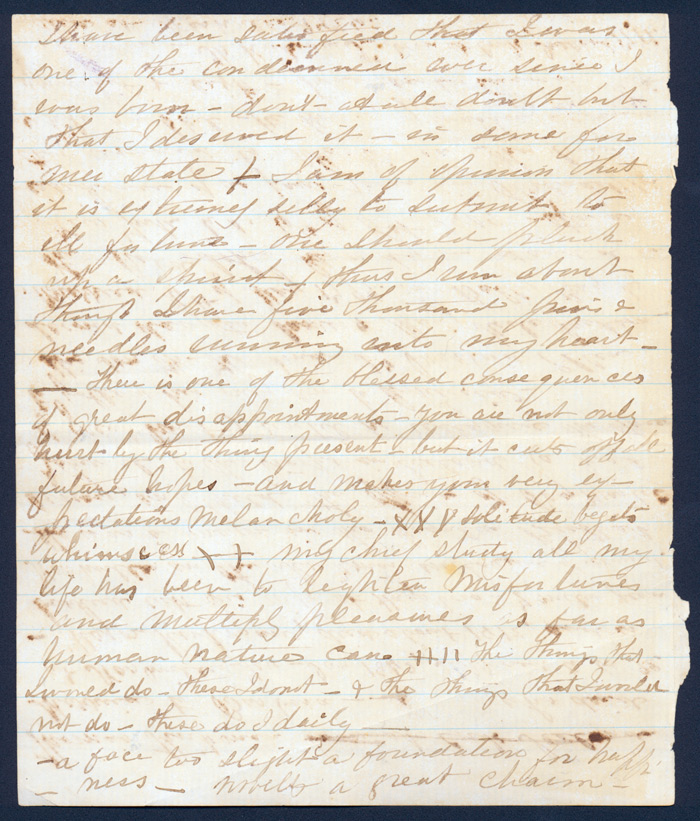 I have been satisfied that I was
one of the condemned ever since I
was born - don't at all doubt but
that I deserved it - in some for
mer state + I am of opinion that
it is extremely silly to submit to
ill fortune - one should pluck
up a spirit - thus I run about
though I have five thousand pins &
needles running into my heart -
- There is one of the blessed consequences
of great disappointments - you are not only
hurt by the thing present - but it cuts off all
future hopes - and makes your very ex-
pectations melancholy - X X X solitude begets
whimsies X + my chief study all my
life has been to lighten misfortunes
and multiply pleasures as far as
human nature can. The things that
I would do - these I do not - & the things that I would
not do - these do I daily -
- a face too slight a foundation for happi
- ness - novelty a great charm -